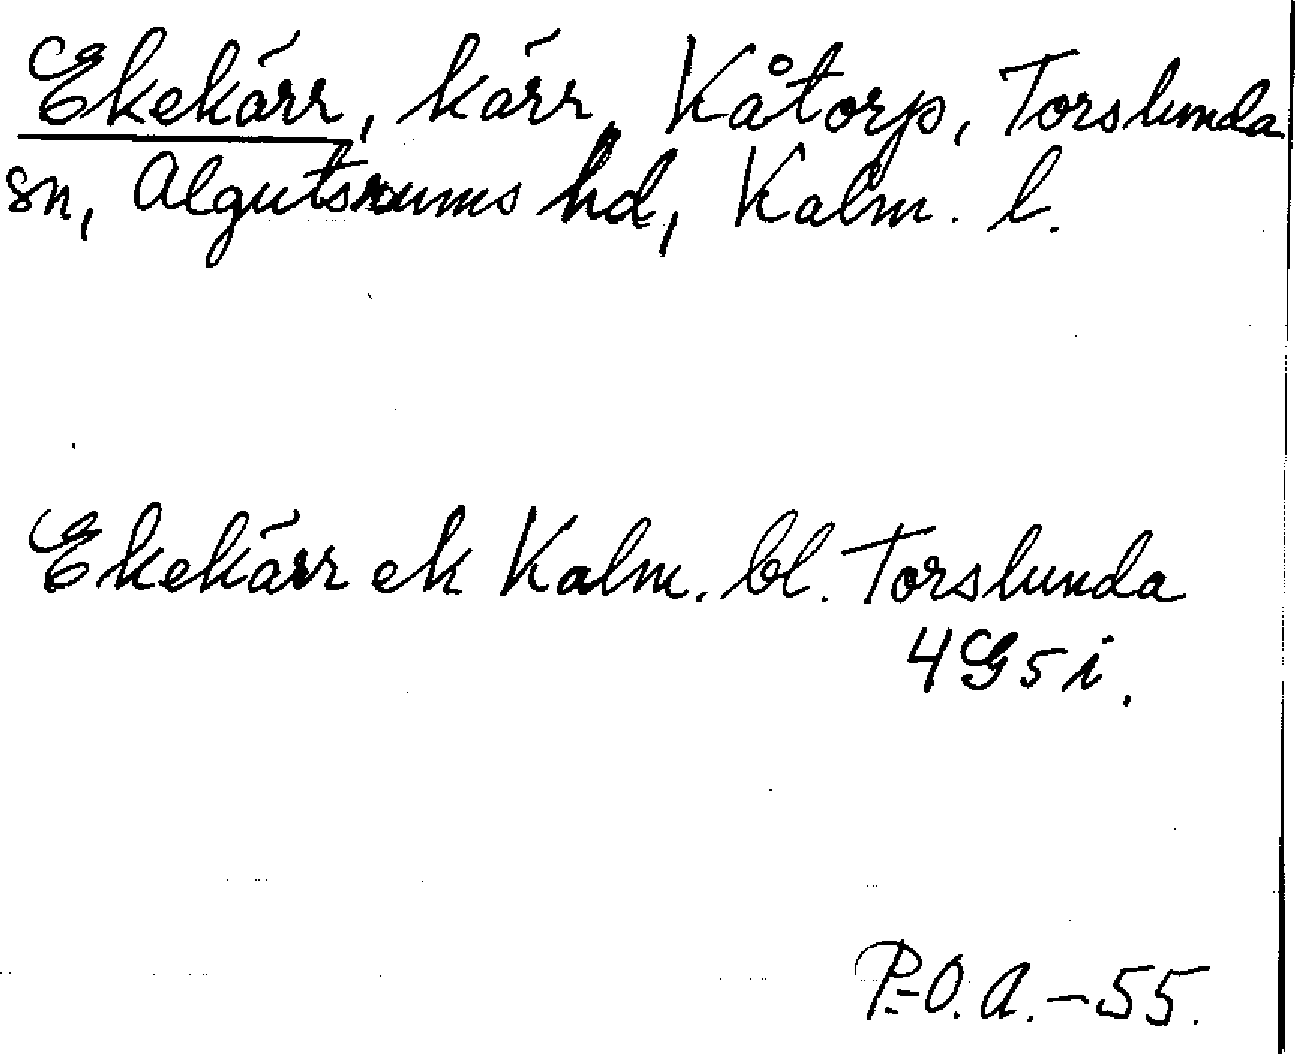 Ekekärr, kärr, Kåtorp, Torslunda
sn, Algutsrums hd, Kalm. l.
Ekekärr ek Kalm. bl. Torslunda
4G5i.
P.-O.A.-55.